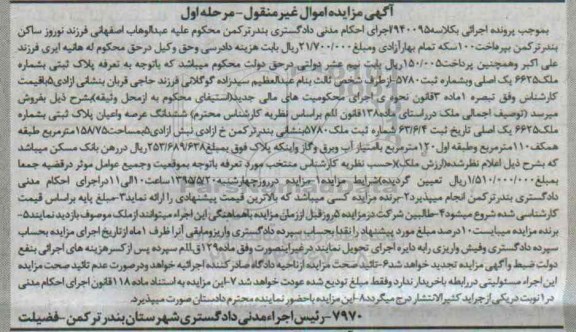 آگهی مزایده اموال غیر منقول - مرحله اول
بموجب پرونده اجرائی بکلاسه ۹۴۰۰۹۵ اجرای احکام مدنی دادگستری بندر ترکمن محکوم علیه عبدالوهاب اصفهانی فرزند نوروز ساکن
بندر ترکمن بپرداخت ۱۰۰ سکه تمام بهار آزادی ومبلغ ۲۱/۷۰۰/۰۰۰ ریال بابت هزینه دادرسی وحق وکیل در حق محکوم له هانیه ایری فرزند
علی اکبر وهمچنین پرداخت ۱۵۰/۰۰۵ ریال بابت نیم عشر دولتی در حق دولت محکوم میباشد که باتوجه به تعرفه پلاک ثبتی بشماره
ملک ۶۶۲۵ یک اصلی وبشماره ثبت ۵۷۸۰ از طرف شخص ثالث بنام عبدالعظیم سیدزاده گوگلانی فرزند حاجی قربان بنشانی ازادی ۵ باقیمت
کارشناس وفق تبصره ۱ ماده ۳ قانون نحوه اجرای محکومیت های مالی جدید (استیفای محکوم به از محل وثیقه) بشرح ذیل بفروش
میرسد (توصیف اجمالی ملک در راستای ماده ۱۳۸ قانون آ.ا.م براساس نظریه کارشناس محترم) ششدانگ عرصه واعیان پلاک ثبتی بشماره
ملک ۶۶۲۵ یک اصلی تاریخ ثبت ۶۳/۶/۴ شماره ثبت ملک ۵۷۸۰ بنشانی بندر ترکمن خ ازادی نبش ازادی ۵ بمساحت ۱۵۸/۷۵ مترمربع طبقه
همکف ۱۱۰ مترمربع وطبقه اول ۱۲۰ مترمربع باامتیاز آب وبرق وگاز واینکه پلاک فوق بمبلغ ۲۵۳/۶۸۹/۶۳۸ ریال در رهن بانک مسکن میباشد
که بشرح ذیل اعلام نظر شده (ارزش ملک) (حسب نظریه کارشناس منتخب مورد تعرفه باتوجه بموقعیت وجمیع عوامل موثر در قضیه جمعا
بمبلغ ۱/۵۱۰/۰۰۰/۰۰۰ ریال تعیین گردیده) شرایط مزایده ۱- مزایده در روز چهارشنبه ۱۳۹۵/۵/۲۰ ساعت ۱۰ الی ۱۱ در اجرای احکام مدنی
دادگستری بندر ترکمن انجام میپذیرد ۲- برنده مزایده کسی میباشد که بالاترین قیمت پیشنهادی را ارائه نماید ۳- مبلغ پایه براساس قیمت
کارشناسی شده شروع میشود ۴- طالبین شرکت در مزایده ۵ روز قبل از زمان مزایده باهماهنگی این اجراء میتوانند از ملک موصوف بازدید نمایند ۵-
برنده مزایده میبایست ۱۰ درصد مبلغ مورد پیشنهاد را نقدا بحساب سپرده دادگستری واریز ومابقی آنرا ظرف ۱ ماه از تاریخ اجرای مزایده بحساب
سپرده دادگستری وفیش واریزی را به دایره اجرای تحویل نمایند در غیر اینصورت وفق ماده ۱۲۹ ق.ا.ا.م سپرده پس از کسر هزینه های اجرائی بنفع
دولت ضبط و آگهی مزایده تجدید خواهد شد ۶- تائید صحت مزایده از ناحیه دادگاه صادر کننده اجرائیه خواهد و در صورت عدم تائید صحت مزایده
این اجراء مسئولیتی در رابطه باخریدار ندارد وفقط مبلغ تودیع شده عودت خواهد شد ۷- این مزایده به استناد ماده ۱۱۸ قانون اجرای احکام مدنی
در ۱ نوبت دریکی از جراید کثیرالانتشار درج میگردد ۸- این مزایده باحضور نماینده محترم دادستان صورت میپذیرد.
۷۹۷۰- رئیس اجراء مدنی دادگستری شهرستان بندر ترکمن - فضیلت